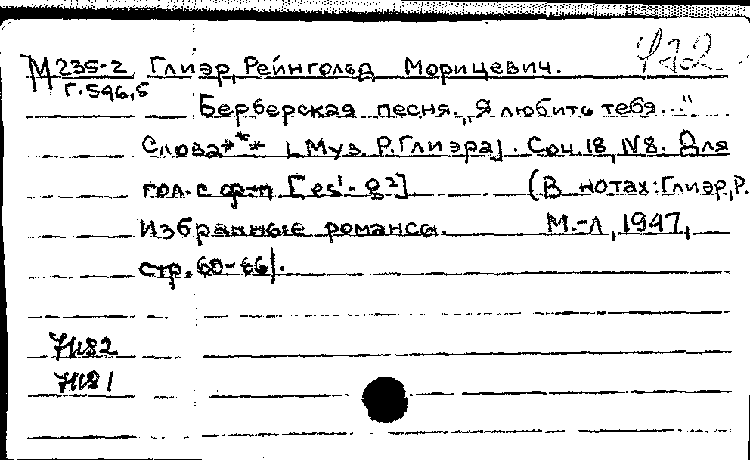 412
М 235-2 Глиэр, Рейнгольд Морицевич.
Г.546,5
Берберская песня. „Я любить тебя..."
Слова*** [Муз. Р.Глиэра]. Соч.18, N8. Для
гол. с ф-п. [es¹-g²] (В нотах: Глиэр, Р.
Избранные романсы. М.-Л, 1947,
стр. 60-66).